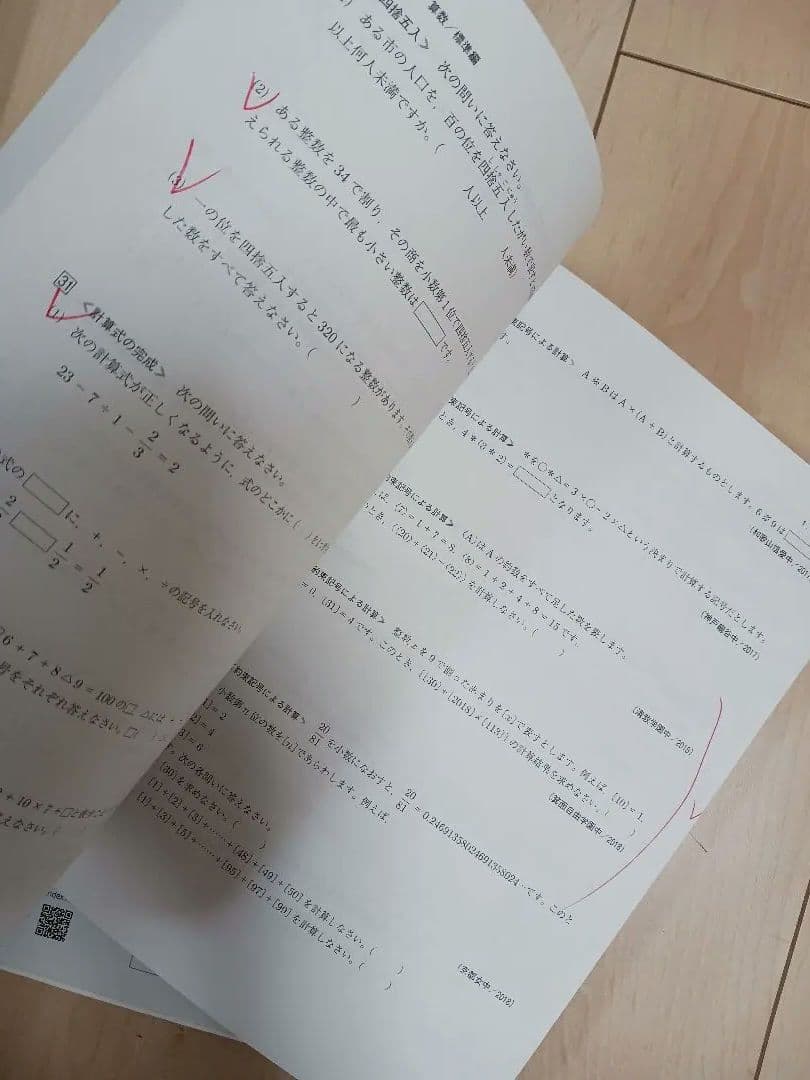 算数/標準編
四捨五入> 次の問いに答えなさい。
ある市の人口を、百の位を四捨五入した
以上何人未満ですか。( 人以上 人未満)
(2) ある整数を34で割り、その商を小数第1位で四捨五入
えられる整数の中で最も小さい整数は です。
(3) 一の位を四捨五入すると320になる整数があります。
した数をすべて答えなさい。( )
31 <計算式の完成> 次の問いに答えなさい。
(1) 次の計算式が正しくなるように、式のどこかに( )
23 − 7 ÷ 1 − 2/3 = 2
式の に、+、−、×、÷の記号を入れなさい
1/2 = 1/2
6 + 7 + 8 △ 9 = 100の□、△には
号をそれぞれ答えなさい。□(
+ 10 × 7 ÷ □
えなさい。(
index
束記号による計算> A※BはA×(A+B)と計算するものとします。6※9は
す。
(和歌山信愛中/201
束記号による計算> *を○*△=3×○−2×△という決まりで計算する記号だとします。
とき、4*(3*2)= となります。
(神戸龍谷中/2017)
約束記号による計算> 〈A〉はAの約数をすべて足した数を表します。
ば、〈7〉=1+7=8、〈8〉=1+2+4+8=15です。
のとき、〈〈20〉+〈21〉−〈22〉〉を計算しなさい。( )
(清教学園中/2019)
約束記号による計算> 整数xを9で割った余りを[x]で表すとします。例えば、[10]=1、
=0、[31]=4です。このとき、[[30]+[2018]×[113]]の計算結果を求めなさい。( )
(箕面自由学園中/2018)
約束記号による計算> 20/81を小数になおすと、20/81=0.24691358024691358024…です。このと
小数第n位の数を[n]であらわします。例えば、
[1]=2
[2]=4
[3]=6
す。次の各問いに答えなさい。
[30]を求めなさい。( )
[1]+[2]+[3]+……+[48]+[49]+[50]を計算しなさい。( )
[1]+[3]+[5]+……+[95]+[97]+[99]を計算しなさい。( )
(京都女中/2018)